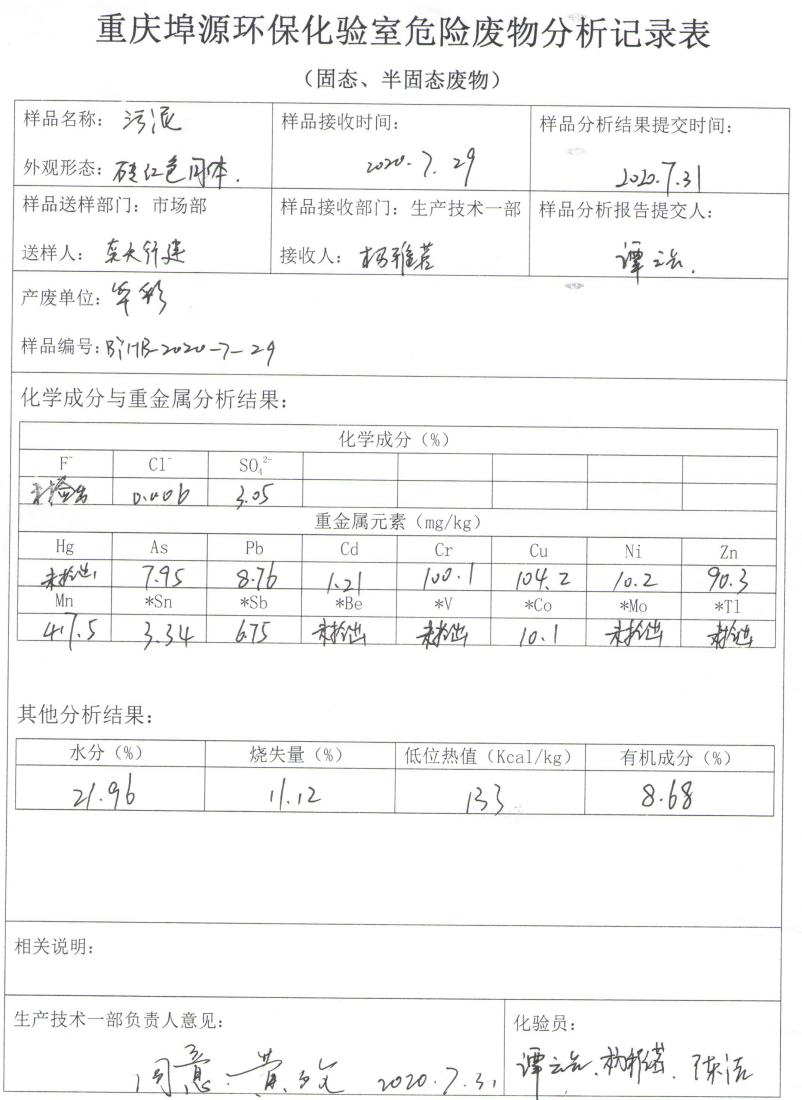 重庆埠源环保化验室危险废物分析记录表
（固态、半固态废物）
样品名称：污泥
样品接收时间：
样品分析结果提交时间：
外观形态：砖红色固体.
2020.7.29
2020.7.31
样品送样部门：市场部
样品接收部门：生产技术一部
样品分析报告提交人：
送样人：
接收人：杨雅茗
谭云
产废单位：华彩
样品编号：BYHB-2020-7-29
化学成分与重金属分析结果：
化学成分（%）
F⁻ Cl⁻ SO₄²⁻
未检出 0.006 3.05
重金属元素（mg/kg）
Hg As Pb Cd Cr Cu Ni Zn
未检出 7.95 8.76 1.21 100.1 104.2 10.2 90.3
Mn *Sn *Sb *Be *V *Co *Mo *Tl
417.5 3.34 6.75 未检出 未检出 10.1 未检出 未检出
其他分析结果：
水分（%） 烧失量（%） 低位热值（Kcal/kg） 有机成分（%）
21.96 11.12 133 8.68
相关说明：
生产技术一部负责人意见：
化验员：
同意. 黄 2020.7.31
谭云 杨雅茗. 陈洁